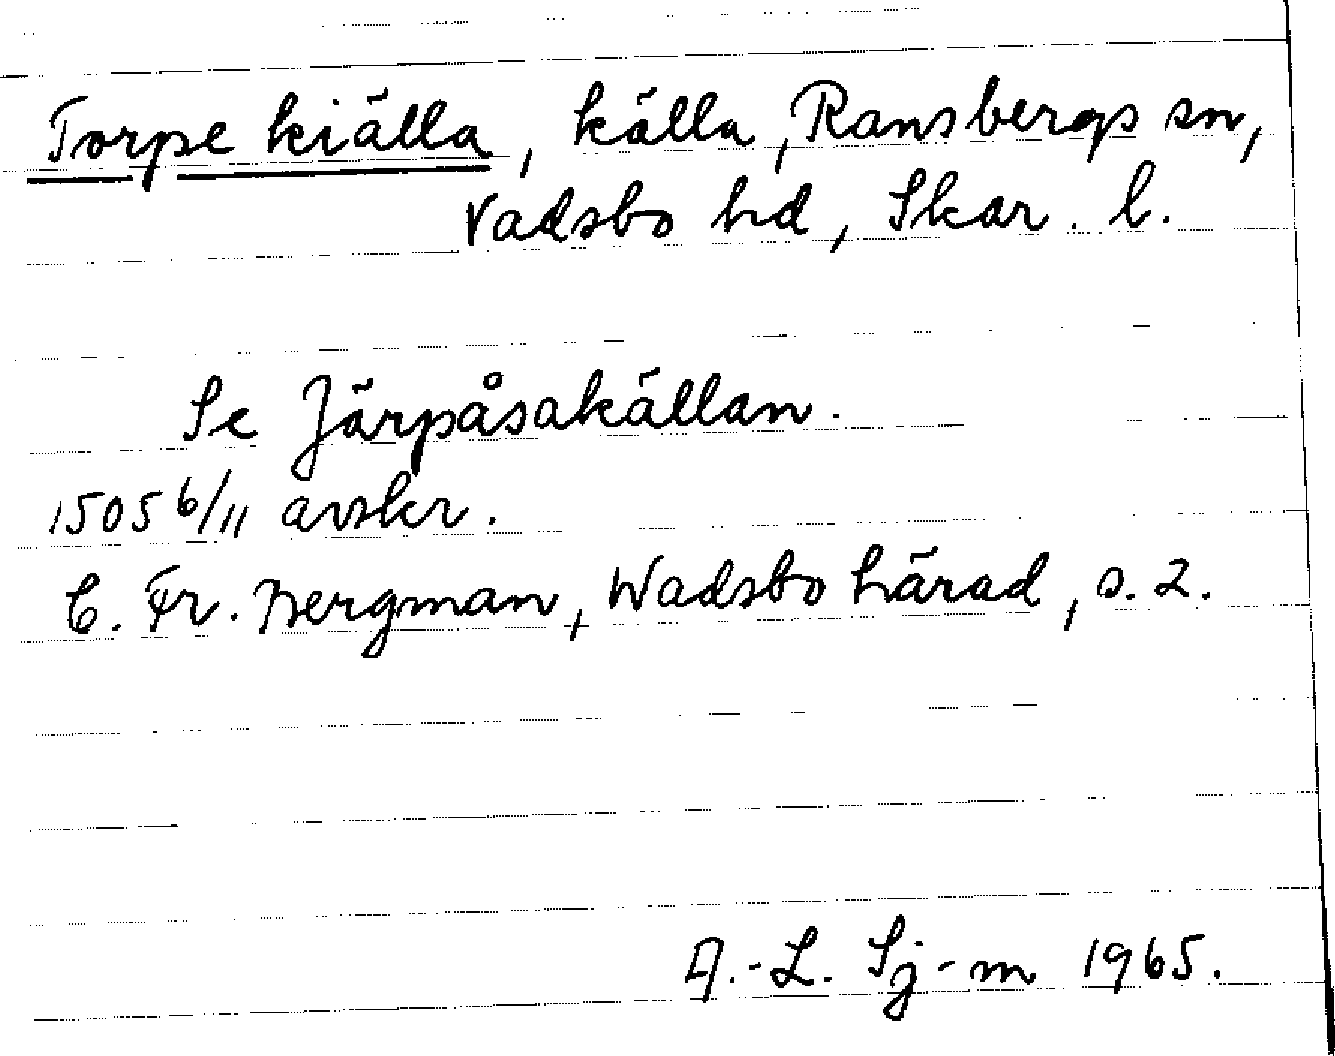 Torpe kiälla, källa, Ransbergs sn,
Vadsbo hd, Skar. l.
Se Järpåsakällan.
1505 6/11 avskr.
C. Fr. Bergman, Wadsbo härad, s. 2.
A.-L. Sj-m 1965.